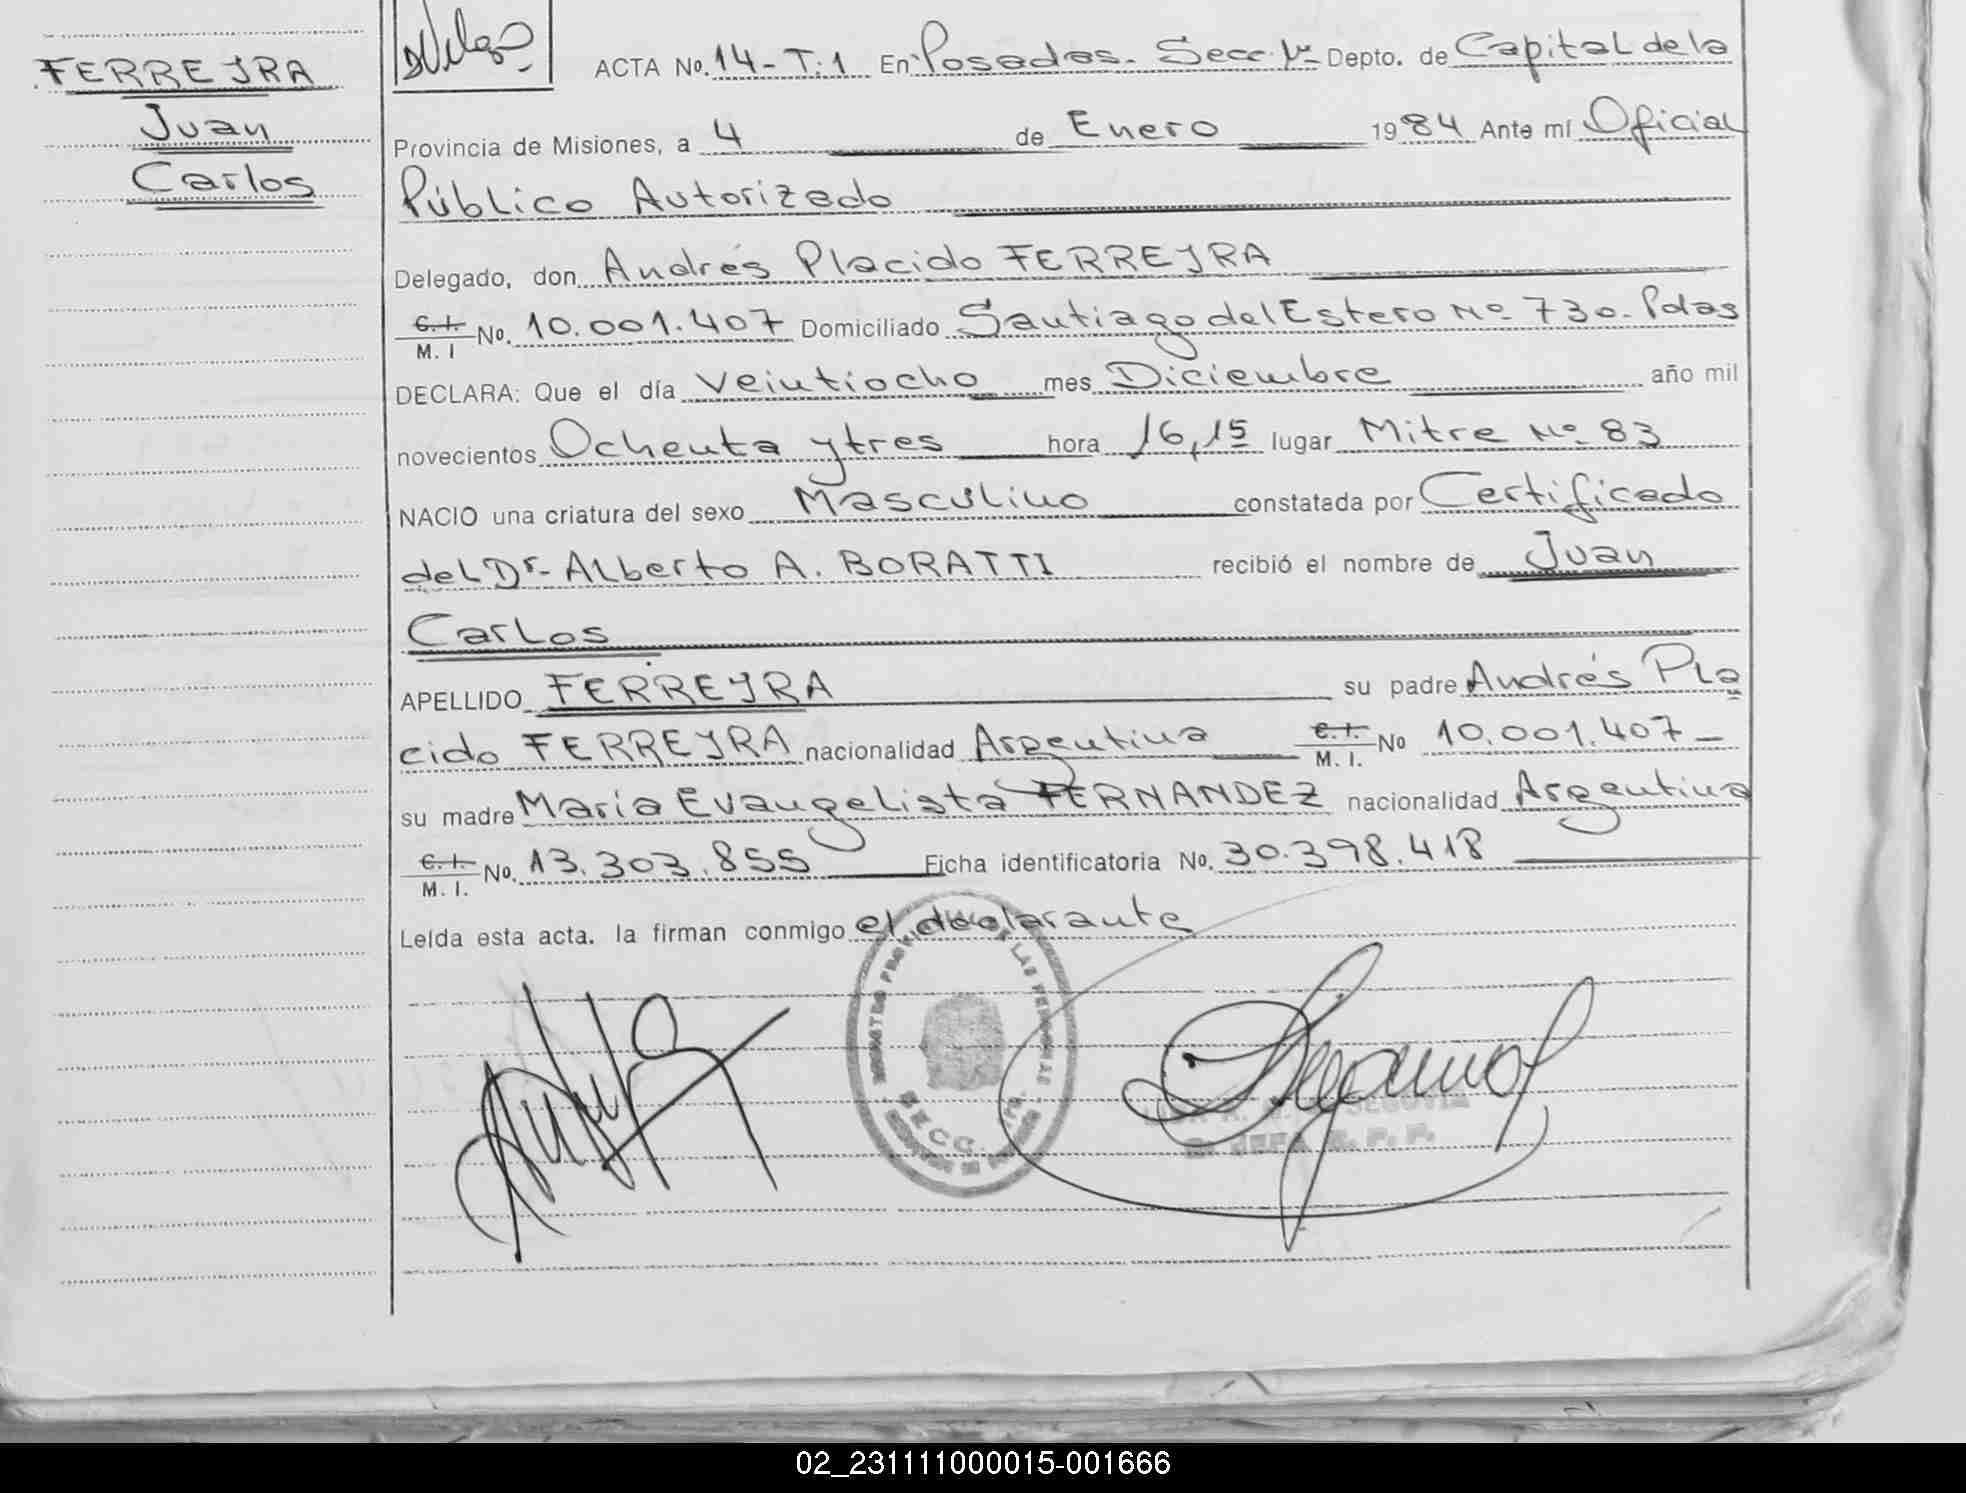 FERREYRA
Juan
Carlos
ACTA No. 14 - T: 1 En Posadas. Secc. 1ra Depto. de Capital de la
Provincia de Misiones, a 4 de Enero 1984 Ante mí Oficial
Público Autorizado
Delegado, don Andrés Placido FERREYRA
C. I. M. I No. 10.001.407 Domiciliado Santiago del Estero Nº 730. Pdas
DECLARA: Que el día Veintiocho mes Diciembre año mil
novecientos Ochenta y tres hora 16,15 lugar Mitre Nº 83
NACIO una criatura del sexo Masculino constatada por Certificado
del Dr. Alberto A. BORATTI recibió el nombre de Juan
Carlos
APELLIDO FERREYRA su padre Andrés Pla
cido FERREYRA nacionalidad Argentina C. I. M. I. No 10.001.407 -
su madre María Evangelista FERNANDEZ nacionalidad Argentina
C. I. M. I. No. 13.303.855 Ficha identificatoria No. 30.398.418
Leída esta acta. la firman conmigo el declarante
SECC.
SEGOVIA
02_231111000015-001666